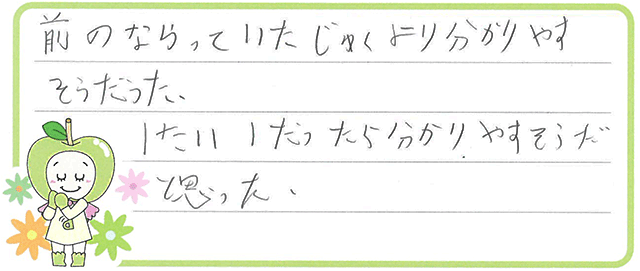 前のならっていたじゅくより分かりやす
そうだった、
1たい1だったら分かりやすそうだ
と思った、